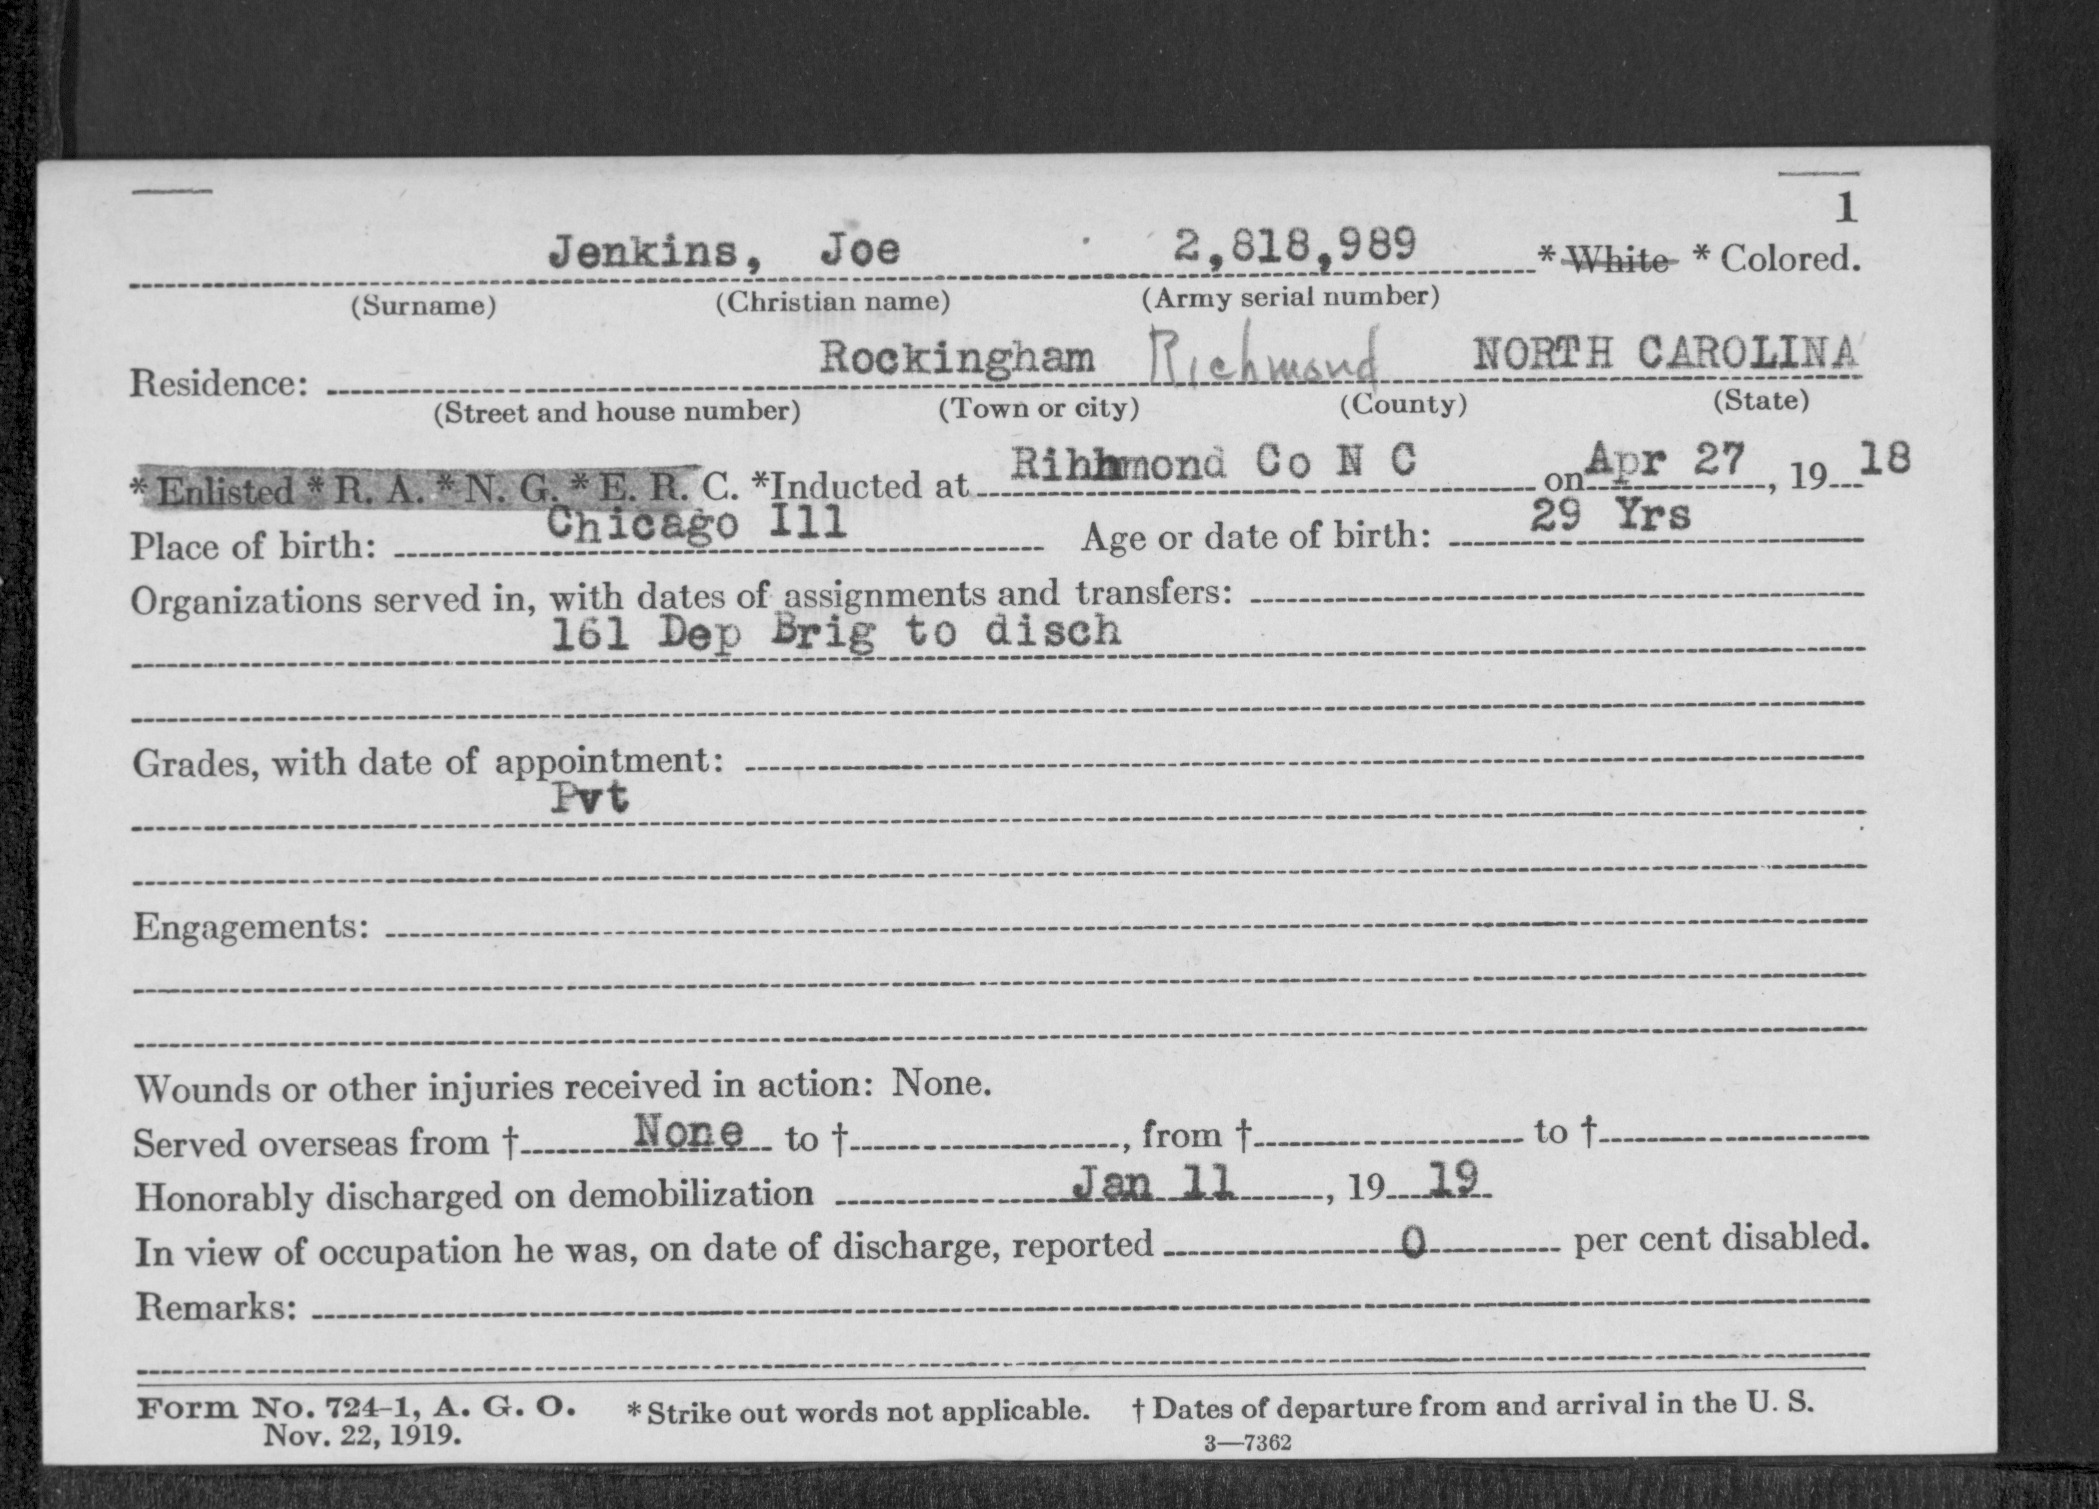 1
Jenkins, Joe 2,818,989 * White * Colored.
(Surname) (Christian name) (Army serial number)
Residence: Rockingham Richmond NORTH CAROLINA
(Street and house number) (Town or city) (County) (State)
* Enlisted * R. A. * N. G. * E. R. C. *Inducted at Rihhmond Co N C on Apr 27, 19 18
Place of birth: Chicago Ill Age or date of birth: 29 Yrs
Organizations served in, with dates of assignments and transfers:
161 Dep Brig to disch
Grades, with date of appointment:
Pvt
Engagements:
Wounds or other injuries received in action: None.
Served overseas from † None to †, from † to †
Honorably discharged on demobilization Jan 11, 19 19
In view of occupation he was, on date of discharge, reported 0 per cent disabled.
Remarks:
Form No. 724-1, A. G. O. * Strike out words not applicable. † Dates of departure from and arrival in the U. S.
Nov. 22, 1919. 3—7362